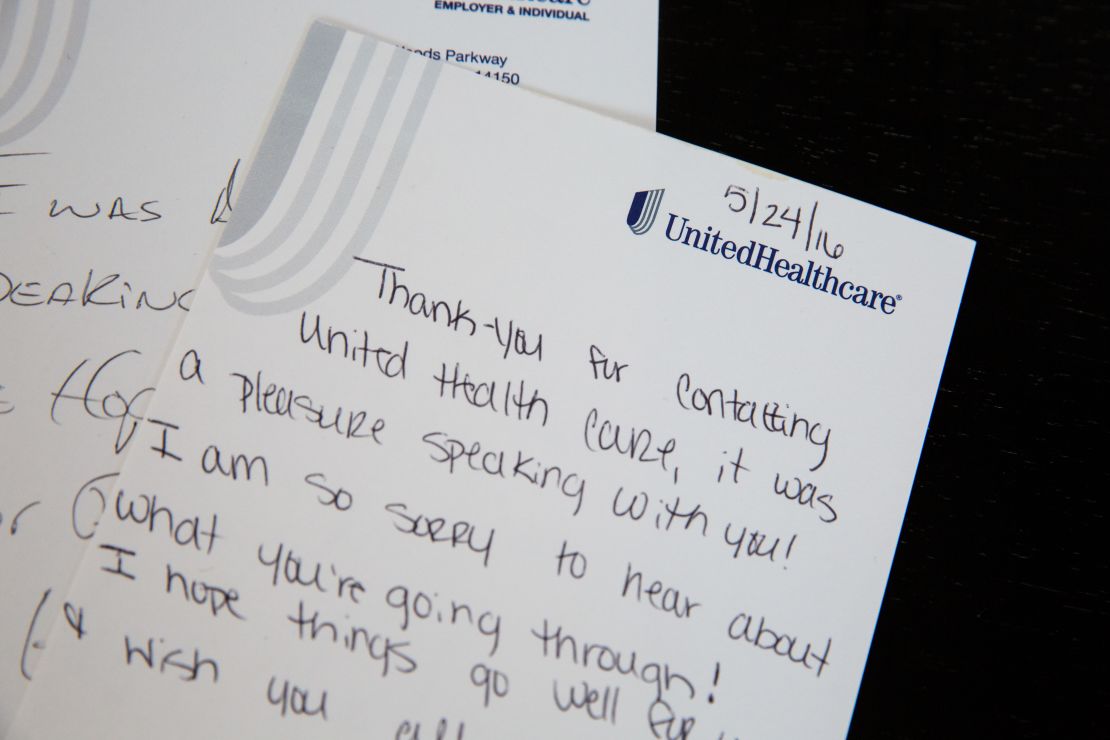 EMPLOYER & INDIVIDUAL
Parkway
14150
I WAS
5/24/16
UnitedHealthcare®
Thank-you for contatting
United Health Care, it was
a pleasure speaking with you!
I am so sorry to hear about
what you're going through!
I hope things go well for
& wish you